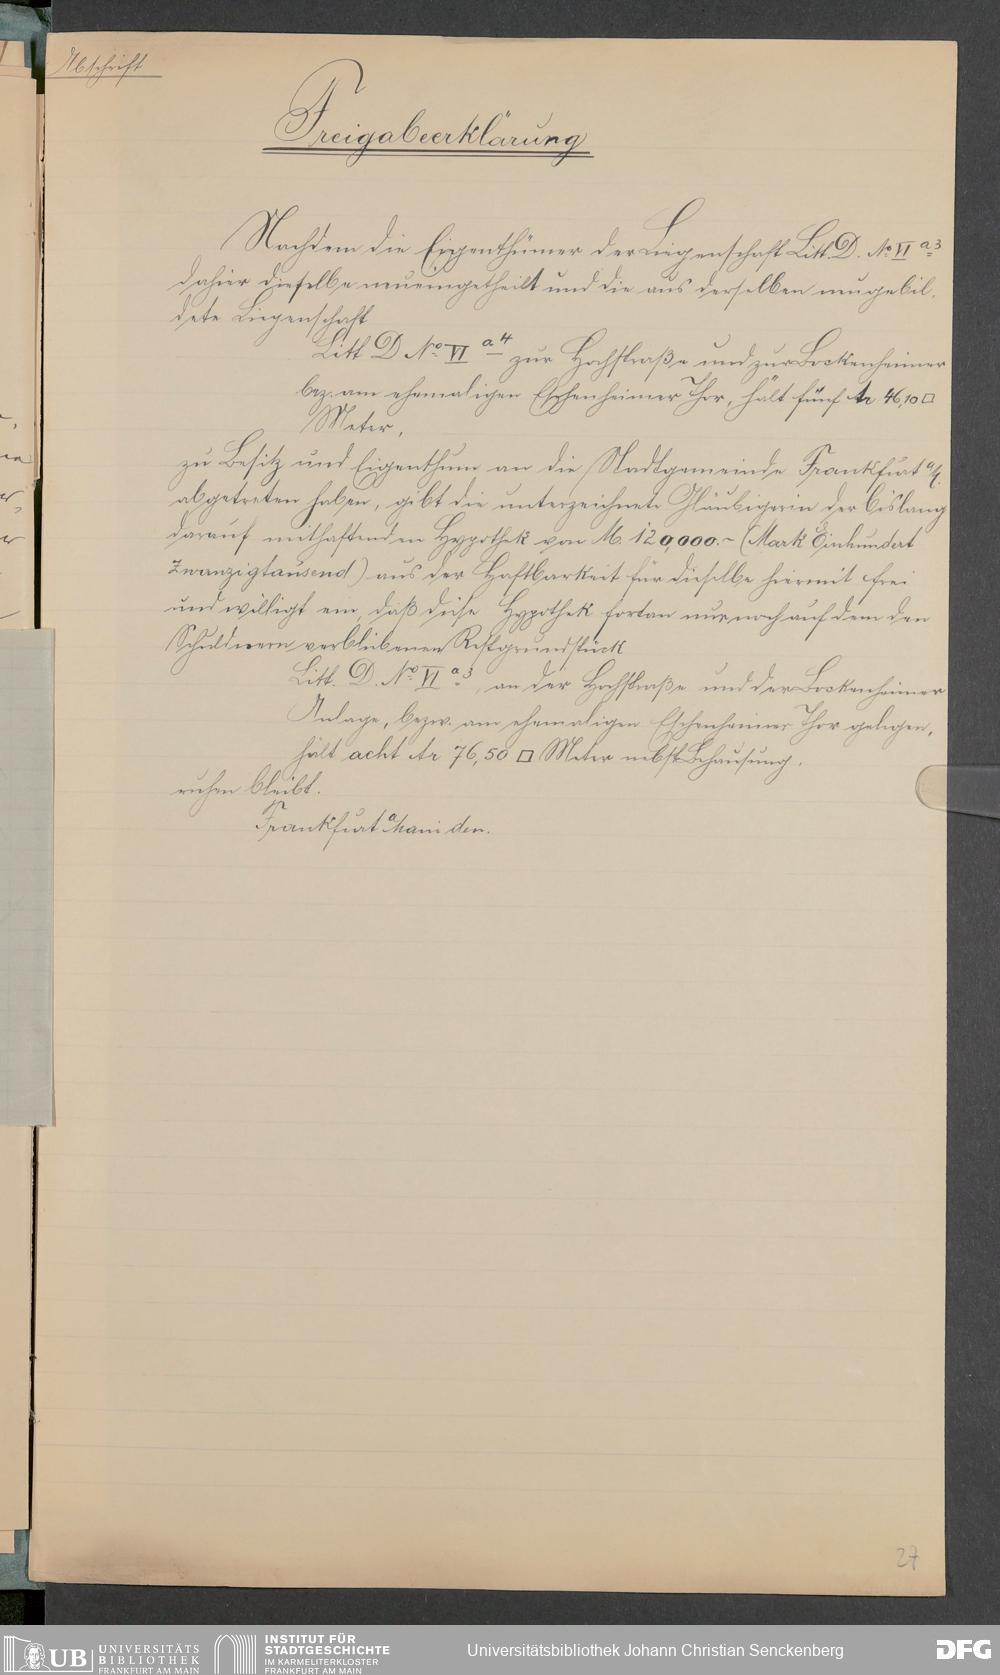 Abschrift
Freigabeerklärung
Nachdem die Eigenthümer der Liegenschaft Litt. D. No. VI a. 3
dahier dieselbe neueingetheilt und die aus derselben neugebil-
dete Liegenschaft
Litt D No. VI a 4 zur Hochstraße und zur Bockenheimer
bez. am ehemaligen Eschenheimer Thor, hält fünf Ar 46,10 □
Meter,
zu Besitz und Eigenthum an die Stadtgemeinde Frankfurt a/M.
abgetreten haben, gibt die unterzeichnete Gläubigerin der bislang
darauf mithaftenden Hypothek von M. 120,000.- (Mark Einhundert
Zwanzigtausend) aus der Haftbarkeit für dieselbe hiermit frei
und willigt ein, daß diese Hypothek fortan nur noch auf dem den
Schuldnern verbliebenen Restgrundstück
Litt. D. No. VI a. 3, an der Hochstraße und der Bockenheimer
Anlage, bezw. am ehemaligen Eschenheimer Thor gelegen,
hält acht Ar 76,50 □ Meter nebst Behausung,
ruhen bleibt.
Frankfurt a Main den.
27
UB UNIVERSITÄTS
BIBLIOTHEK
FRANKFURT AM MAIN
INSTITUT FÜR
STADTGESCHICHTE
IM KARMELITERKLOSTER
FRANKFURT AM MAIN
Universitätsbibliothek Johann Christian Senckenberg
DFG